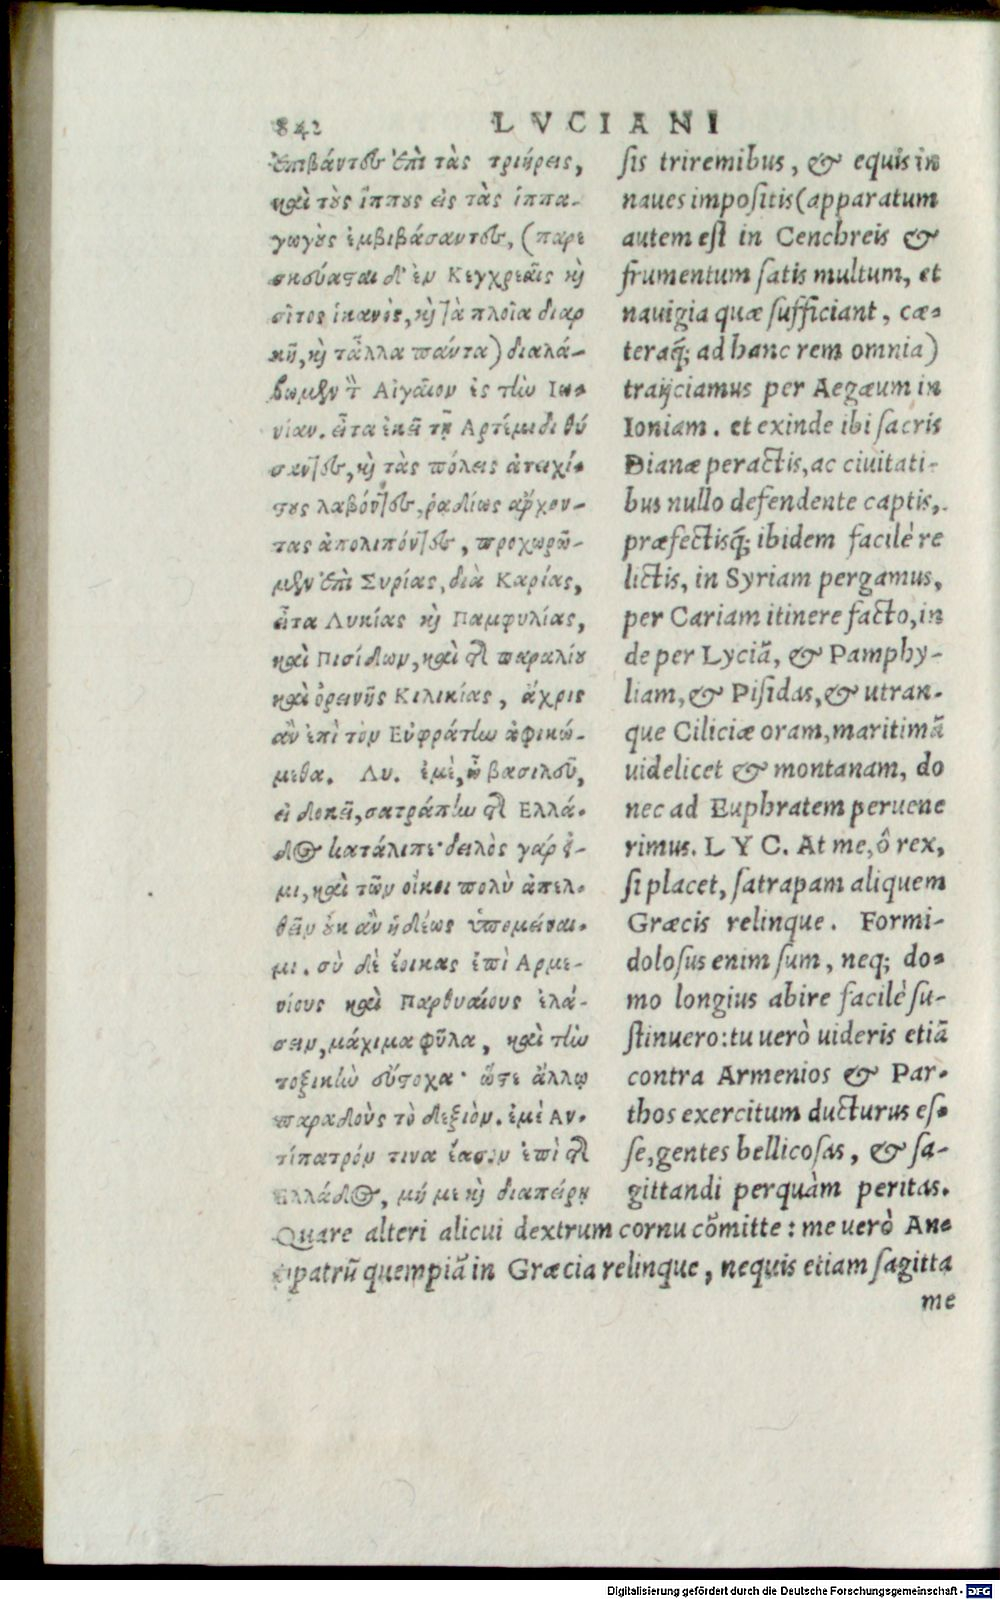 842 LVCIANI
ἐπιβάντες ἐπὶ τὰς τριήρεις,
καὶ τοὺς ἵππους εἰς τὰς ἱππα-
γωγοὺς ἐμβιβάσαντες, (παρε
σκεύασαι δ' ἐν Κεγχρεαῖς κὴ
σῖτος ἱκανὸς, κὴ τὰ πλοῖα διαρ
κῆ, κὴ τἆλλα πάντα) διαλά-
βωμεν τὸ Αἰγαῖον ἐς τὴν Ἰω-
νίαν. εἶτα ἐκεῖ τῇ Αρτέμιδι θύ
σαντες, κὴ τὰς πόλεις ἀτειχί-
στους λαβόντες, ῥαδίως ἄρχον-
τας ἀπολιπόντες, προχωρῶ-
μεν ἐπὶ Συρίας, διὰ Καρίας,
εἶτα Λυκίας κὴ Παμφυλίας,
καὶ Πισίδων, καὶ τῆς παραλίου
καὶ ὀρεινῆς Κιλικίας, ἄχρις
ἂν ἐπὶ τὸν Εὐφράτην ἀφικώ-
μεθα. Λυ. ἐμὲ, ὦ βασιλεῦ,
εἰ δοκεῖ, σατράπην τῆς Ελλά-
δος κατάλιπε· δειλὸς γάρ εἰ-
μι, καὶ τῶν οἴκοι πολὺ ἀπελ-
θεῖν οὐκ ἂν ἡδέως ὑπομείναι-
μι. σὺ δὲ ἔοικας ἐπὶ Αρμε-
νίους καὶ Παρθυαίους ἐλά-
σειν, μάχιμα φῦλα, καὶ τὴν
τοξικὴν εὔστοχα· ὥστε ἄλλῳ
παραδοὺς τὸ δεξιὸν. ἐμὲ Αν-
τίπατρόν τινα ἔασον ἐπὶ τῆς
Ελλάδος, μή με κὴ διαπείρῃ
sis triremibus, & equis in
naues impositis (apparatum
autem est in Cenchreis &
frumentum satis multum, et
nauigia quæ sufficiant, cæ-
teraq́; ad hanc rem omnia)
traijciamus per Aegæum in
Ioniam. et exinde ibi sacris
Dianæ peractis, ac ciuitati-
bus nullo defendente captis,
præfectisq́; ibidem facilè re
lictis, in Syriam pergamus,
per Cariam itinere facto, in
de per Lyciā, & Pamphy-
liam, & Pisidas, & utran-
que Ciliciæ oram, maritimā
uidelicet & montanam, do
nec ad Euphratem peruene
rimus. LYC. At me, ô rex,
si placet, satrapam aliquem
Græcis relinque. Formi-
dolosus enim sum, neq; do-
mo longius abire facilè su-
stinuero: tu uerò uideris etiā
contra Armenios & Par-
thos exercitum ducturus es-
se, gentes bellicosas, & sa-
gittandi perquàm peritas.
Quare alteri alicui dextrum cornu cōmitte: me uerò An-
tipatrū quempiā in Græcia relinque, nequis etiam sagitta
me
Digitalisierung gefördert durch die Deutsche Forschungsgemeinschaft - DFG